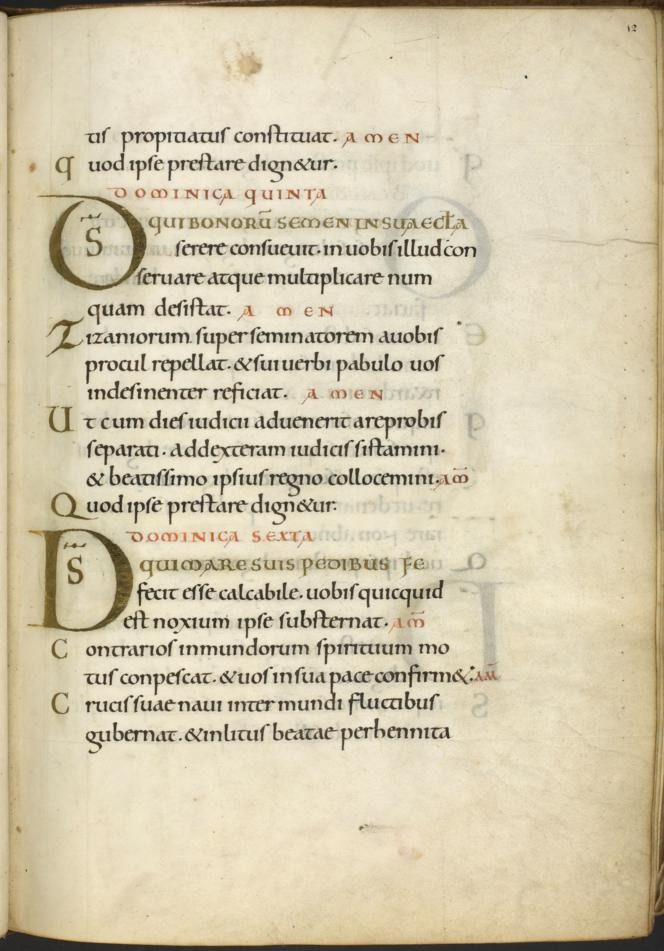 12
tis propitiatus constituat. AMEN
Quod ipse prestare dign&ur.
DOMINICA QUINTA
DS̄ QUI BONORŪ SEMEN IN SUA ECL̄A
serere consueuit. in uobis illud con
seruare atque multiplicare num
quam desistat. AMEN
Zizaniorum superseminatorem auobis
procul repellat. & sui uerbi pabulo uos
indesinenter reficiat. AMEN
Ut cum dies iudicii aduenerit areprobis
separati. addexteram iudicis sistamini.
& beatissimo ipsius regno collocemini. AM̄
Quod ipse prestare dign&ur.
DOMINICA SEXTA
DS̄ QUI MARE SUIS PEDIBUS FE
fecit esse calcabile. uobis quicquid
est noxium ipse substernat. AM̄
Contrarios inmundorum spirituum mo
tus conpescat. & uos in sua pace confirm&. AM̄
Crucis suae naui inter mundi fluctibus
gubernat. & in litus beatae perhennita